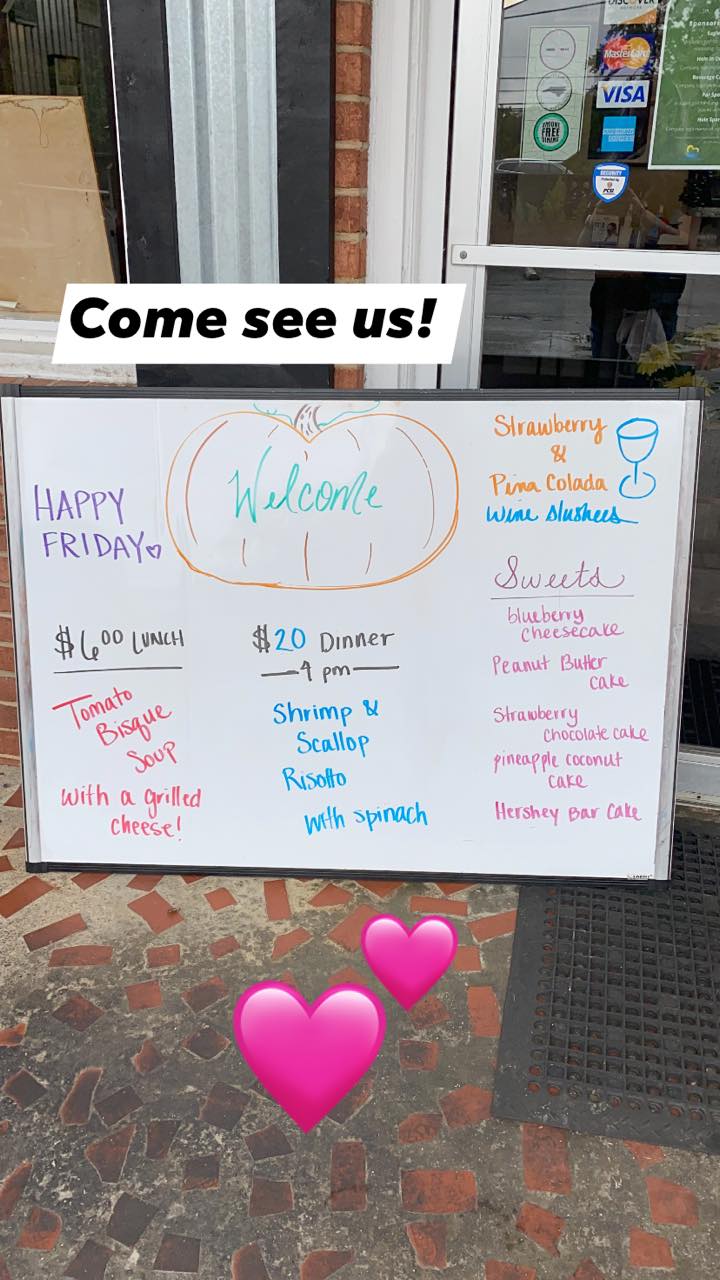 DISCOVER
MasterCard
VISA
SECURITY
Come see us!
Welcome
HAPPY
FRIDAY
$6.00 LUNCH
Tomato
Bisque
Soup
with a grilled
cheese!
$20 Dinner
4 pm
Shrimp &
Scallop
Risotto
with spinach
Strawberry
&
Pina Colada
Wine slushees
Sweets
blueberry
cheesecake
Peanut Butter
cake
Strawberry
chocolate cake
pineapple coconut
cake
Hershey Bar Cake